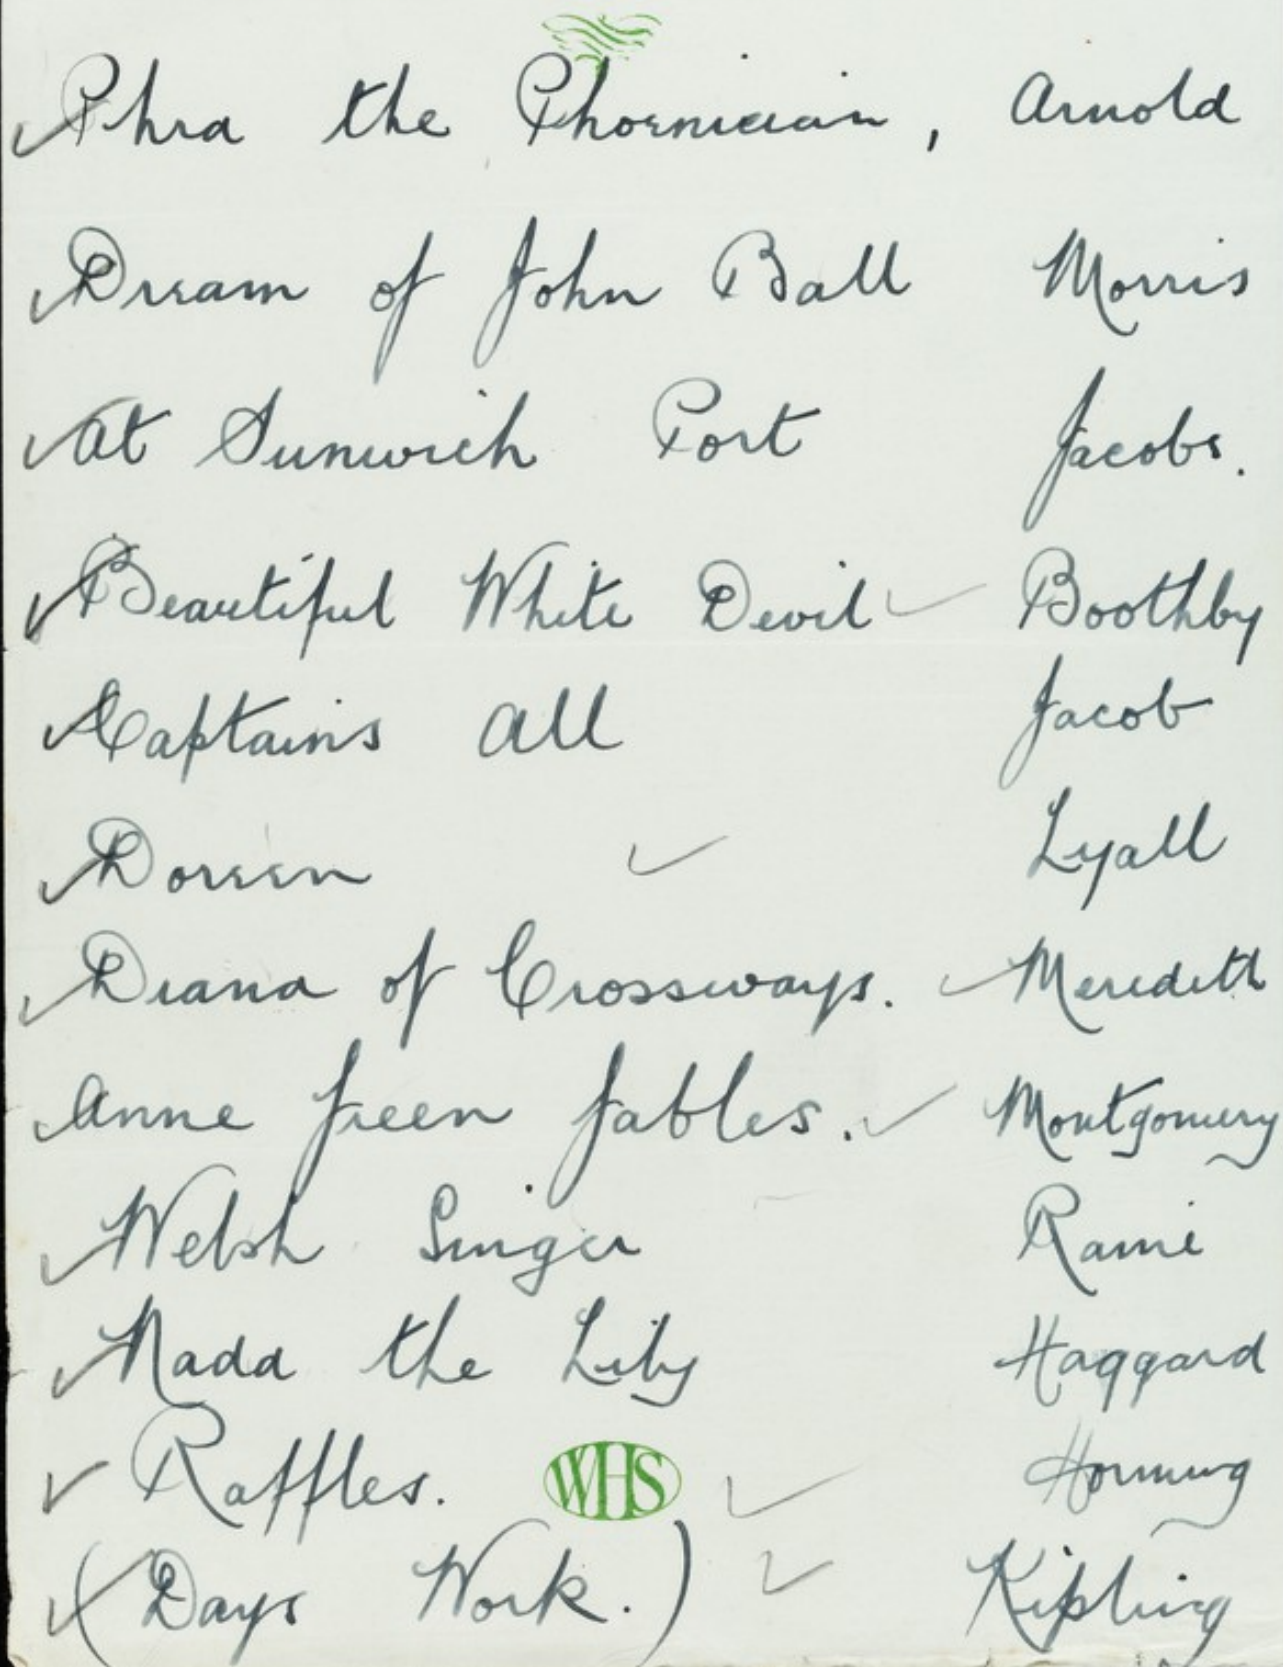 ✓ Phra the Phoenician, Arnold
✓ Dream of John Ball Morris
✓ At Sunwich Port Jacobs.
✓ Beautiful White Devil ✓ Boothby
✓ Captains All Jacob
✓ Doreen ✓ Lyall
✓ Diana of Crossways. ✓ Meredith
✓ Anne Green Gables. ✓ Montgomery
✓ Welsh Singer Raine
✓ Nada the Lily Haggard
✓ Raffles. WHS ✓ Hornung
✓ (Days Work.) ✓ Kipling